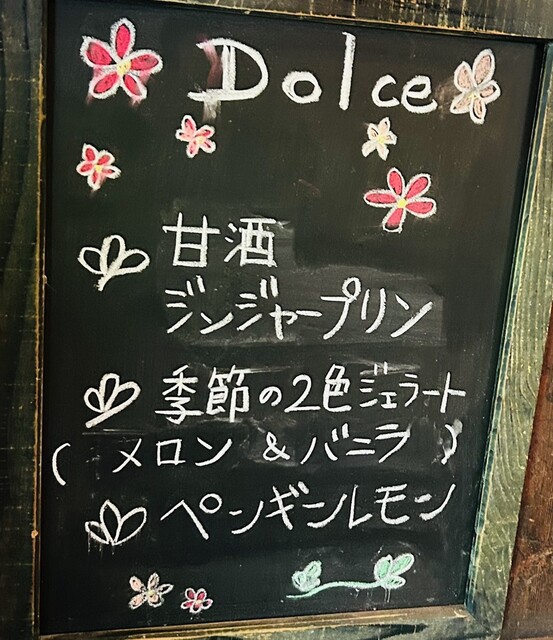 Dolce
甘酒
ジンジャープリン
季節の2色ジェラート
(メロン & バニラ)
ペンギンレモン